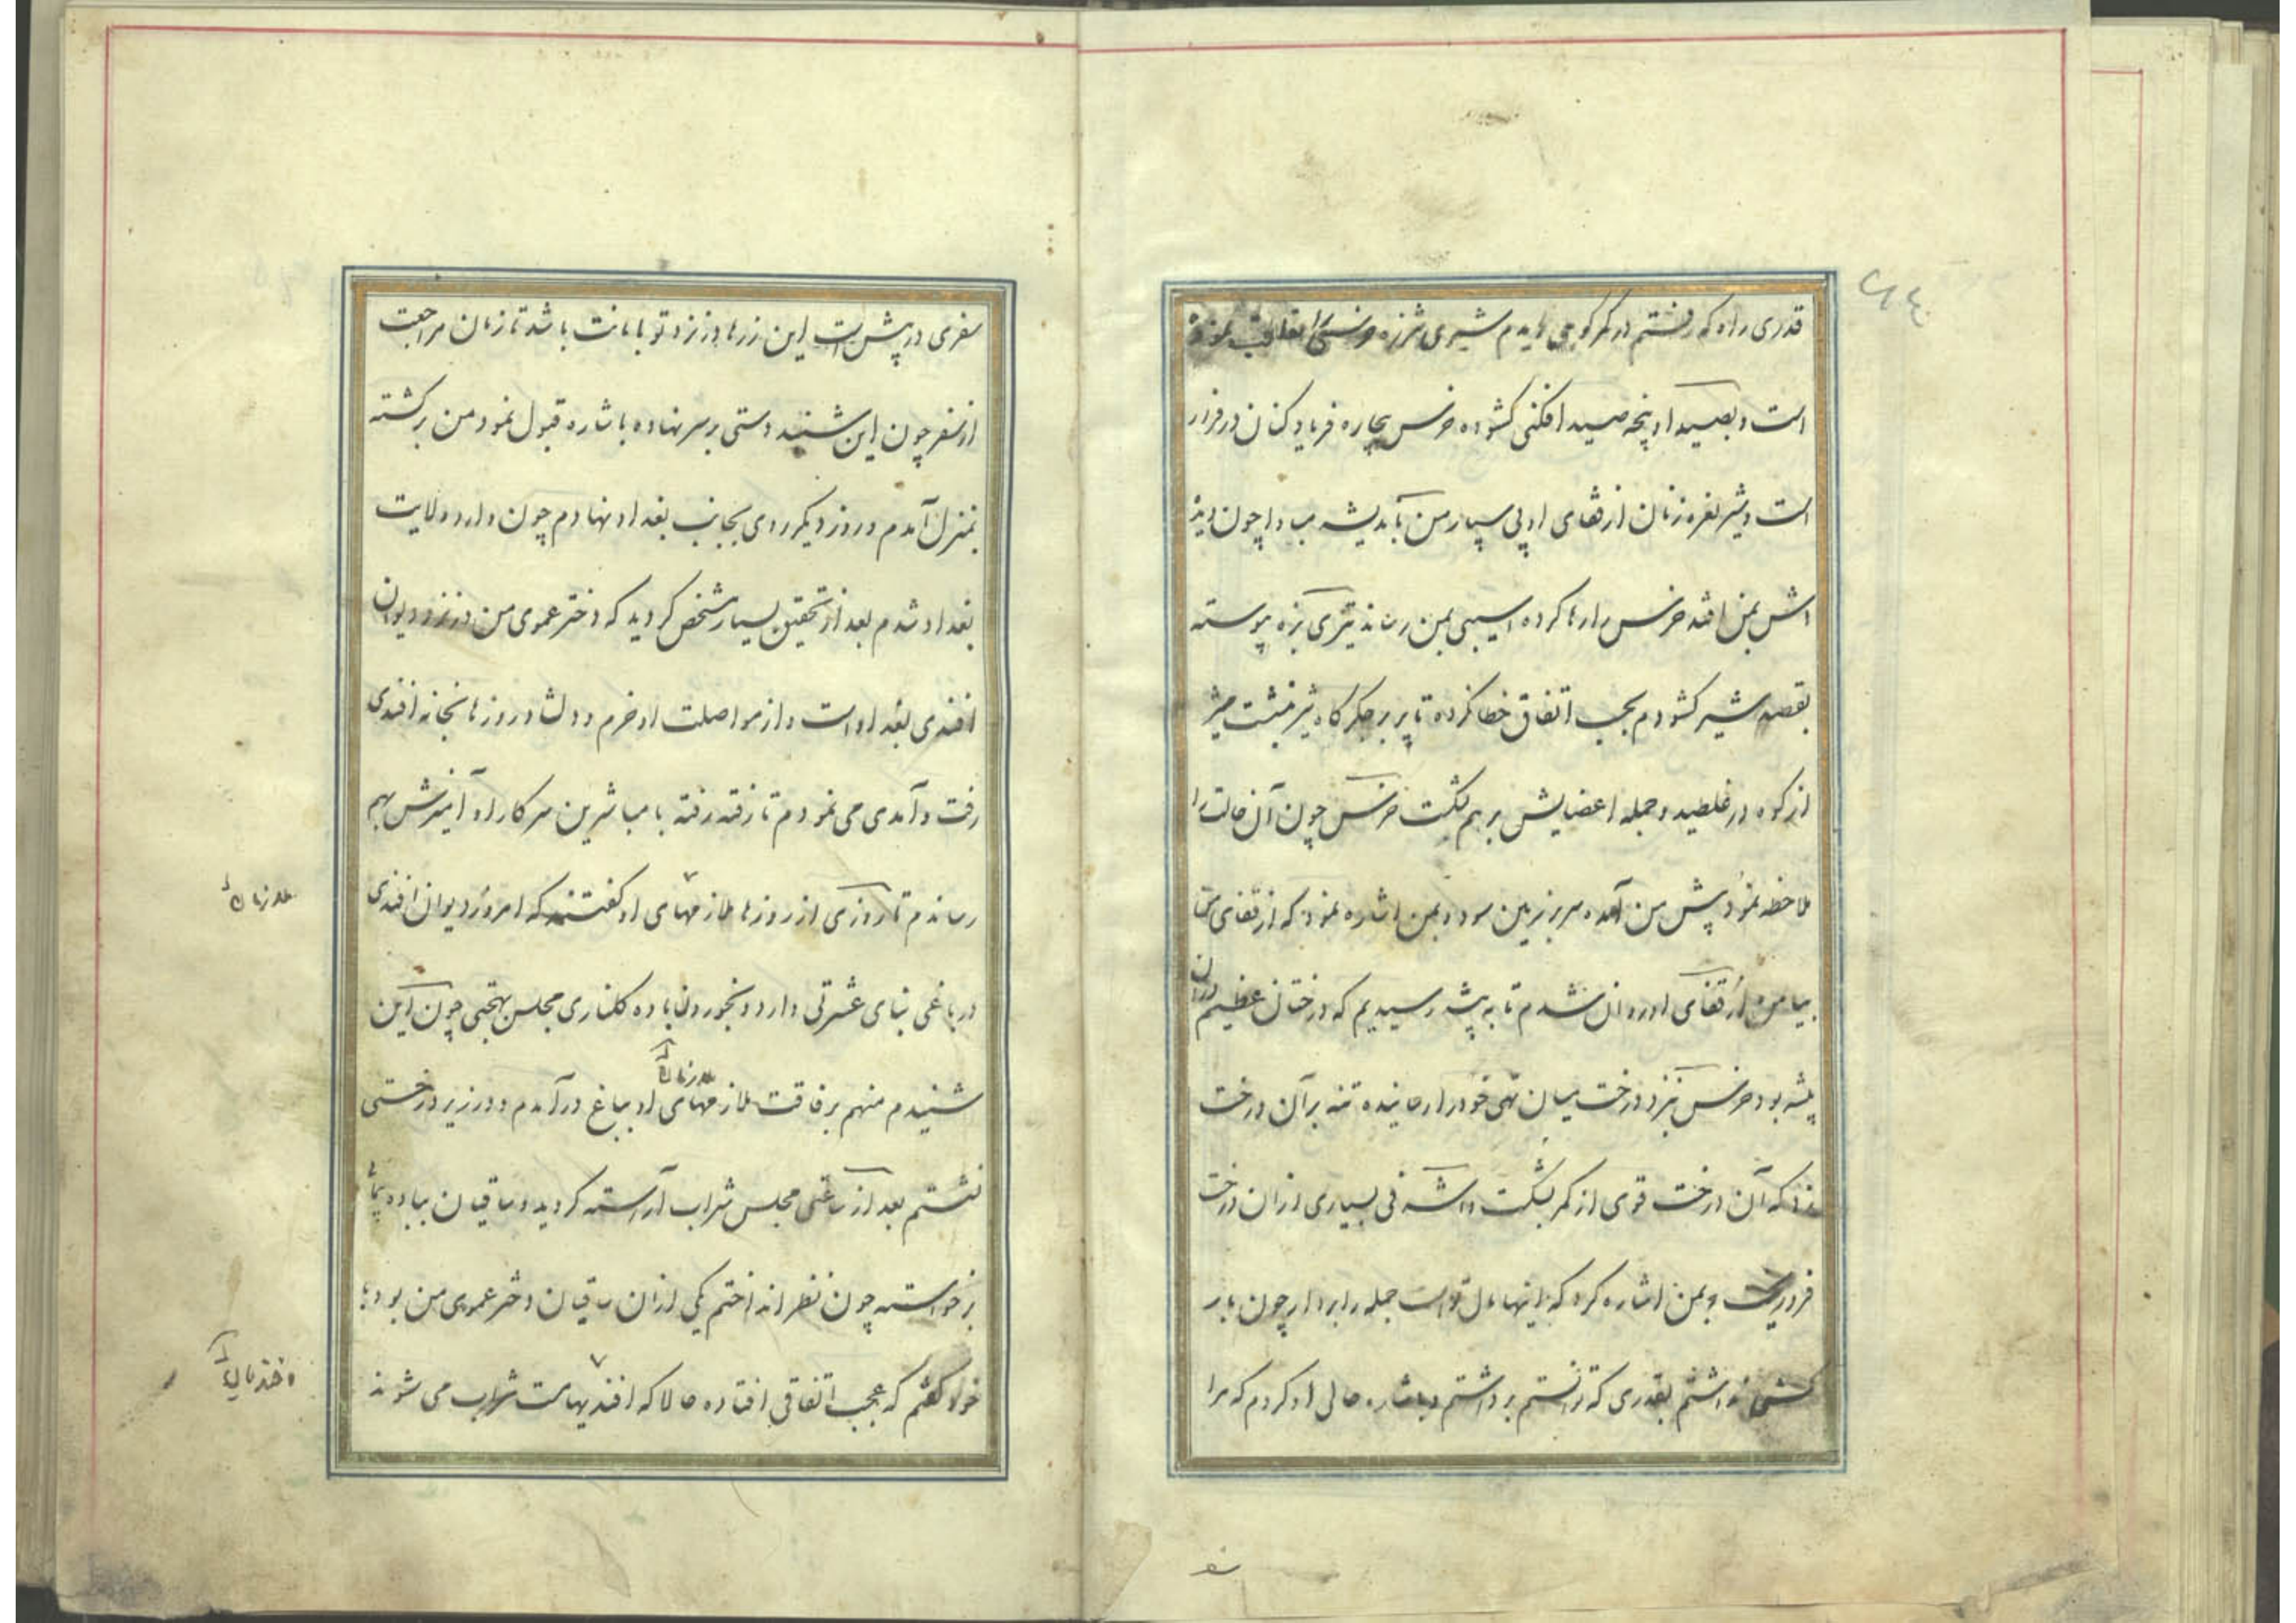 قدری راه که رفتم در کمر کوهی دیدم شیری شرزه خرسی را تعاقب نموده
است و بصید او پنجه صید افکنی کشوده خرس بیچاره فریاد کنان در فرار
است و شیر نعره زنان از قفای او پی سپار من باندیشه مبادا چون دیده
اش بمن افتد خرس را رها کرده آسیبی بمن رساند تیری بزه پیوسته
بقصد شیر کشودم بحسب اتفاق خطا نکرده تا پر بر جگرگاه شیر نشست شیر
از کوه درغلطید و جمله اعضایش بر هم شکست خرس چون آن حالت را
ملاحظه نمود پیش من آمده سر بر زمین سود و بمن اشاره نمود که از قفای من
بیا من از قفای او روان شدم تا به بیشه رسیدیم که درختان عظیم در آن
بیشه بود خرس بنزد درخت میان تهی خود را رسانیده تنه بر آن درخت
زد که آن درخت قوی از کمر بشکست و اشرفی بسیاری از آن درخت
فرو ریخت و بمن اشاره کرد که اینها مال تو است جمله را بردار چون بار
کشی نداشتم بقدری که توانستم برداشتم و باشاره حالی او کردم که مرا
سفری در پیش است این زرها در نزد تو بامانت باشد تا زمان مراجعت
از سفر چون این شنید دستی بر سر نهاده باشاره قبول نمود من برگشته
بمنزل آمدم و روز دیگر روی بجانب بغداد نهادم چون وارد ولایت
بغداد شدم بعد از تحقیق بسیار مشخص گردید که دختر عموی من در نزد دیوان
افندی بغداد است و از مواصلت او خرم و دلشاد روزها بخانه افندی
رفت و آمدی می نمودم تا رفته رفته با مباشرین سرکار او آمیزش بهم
رساندم تا روزی از روزها ملازمهای او گفتند که امروز دیوان افندی
ملازمان
در باغی بنای عشرتی دارد و بخوردن باده گلناری مجلس بهجتی چون این
شنیدم منهم برفاقت ملازمهای او بباغ درآمدم و در زیر درختی
ملازمان
نشستم بعد از ساعتی مجلس شراب آراسته گردید و ساقیان بباده پیمائی
برخواسته چون نظر انداختم یکی از آن ساقیان دختر عموی من بود با
خود گفتم که عجب اتفاقی افتاده حالا که افندیها مست شراب می شوند